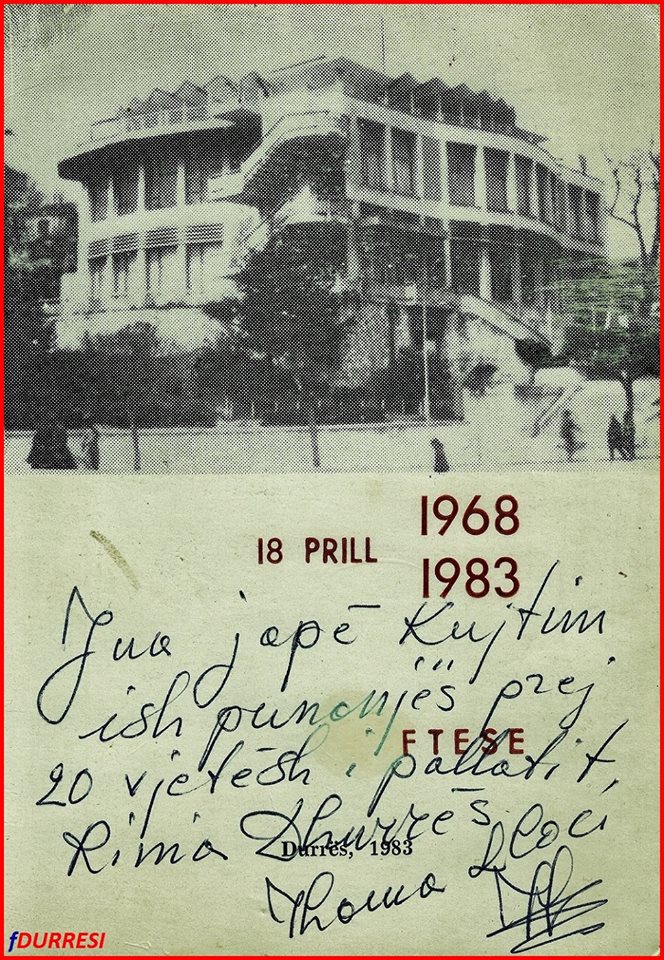 1968
18 PRILL
1983
Jua japë Kujtim
ish punonjës prej
FTESE
20 vjetësh i pallatit,
Rinia Dhurrës
Durrës, 1983
Thoma
fDURRESI